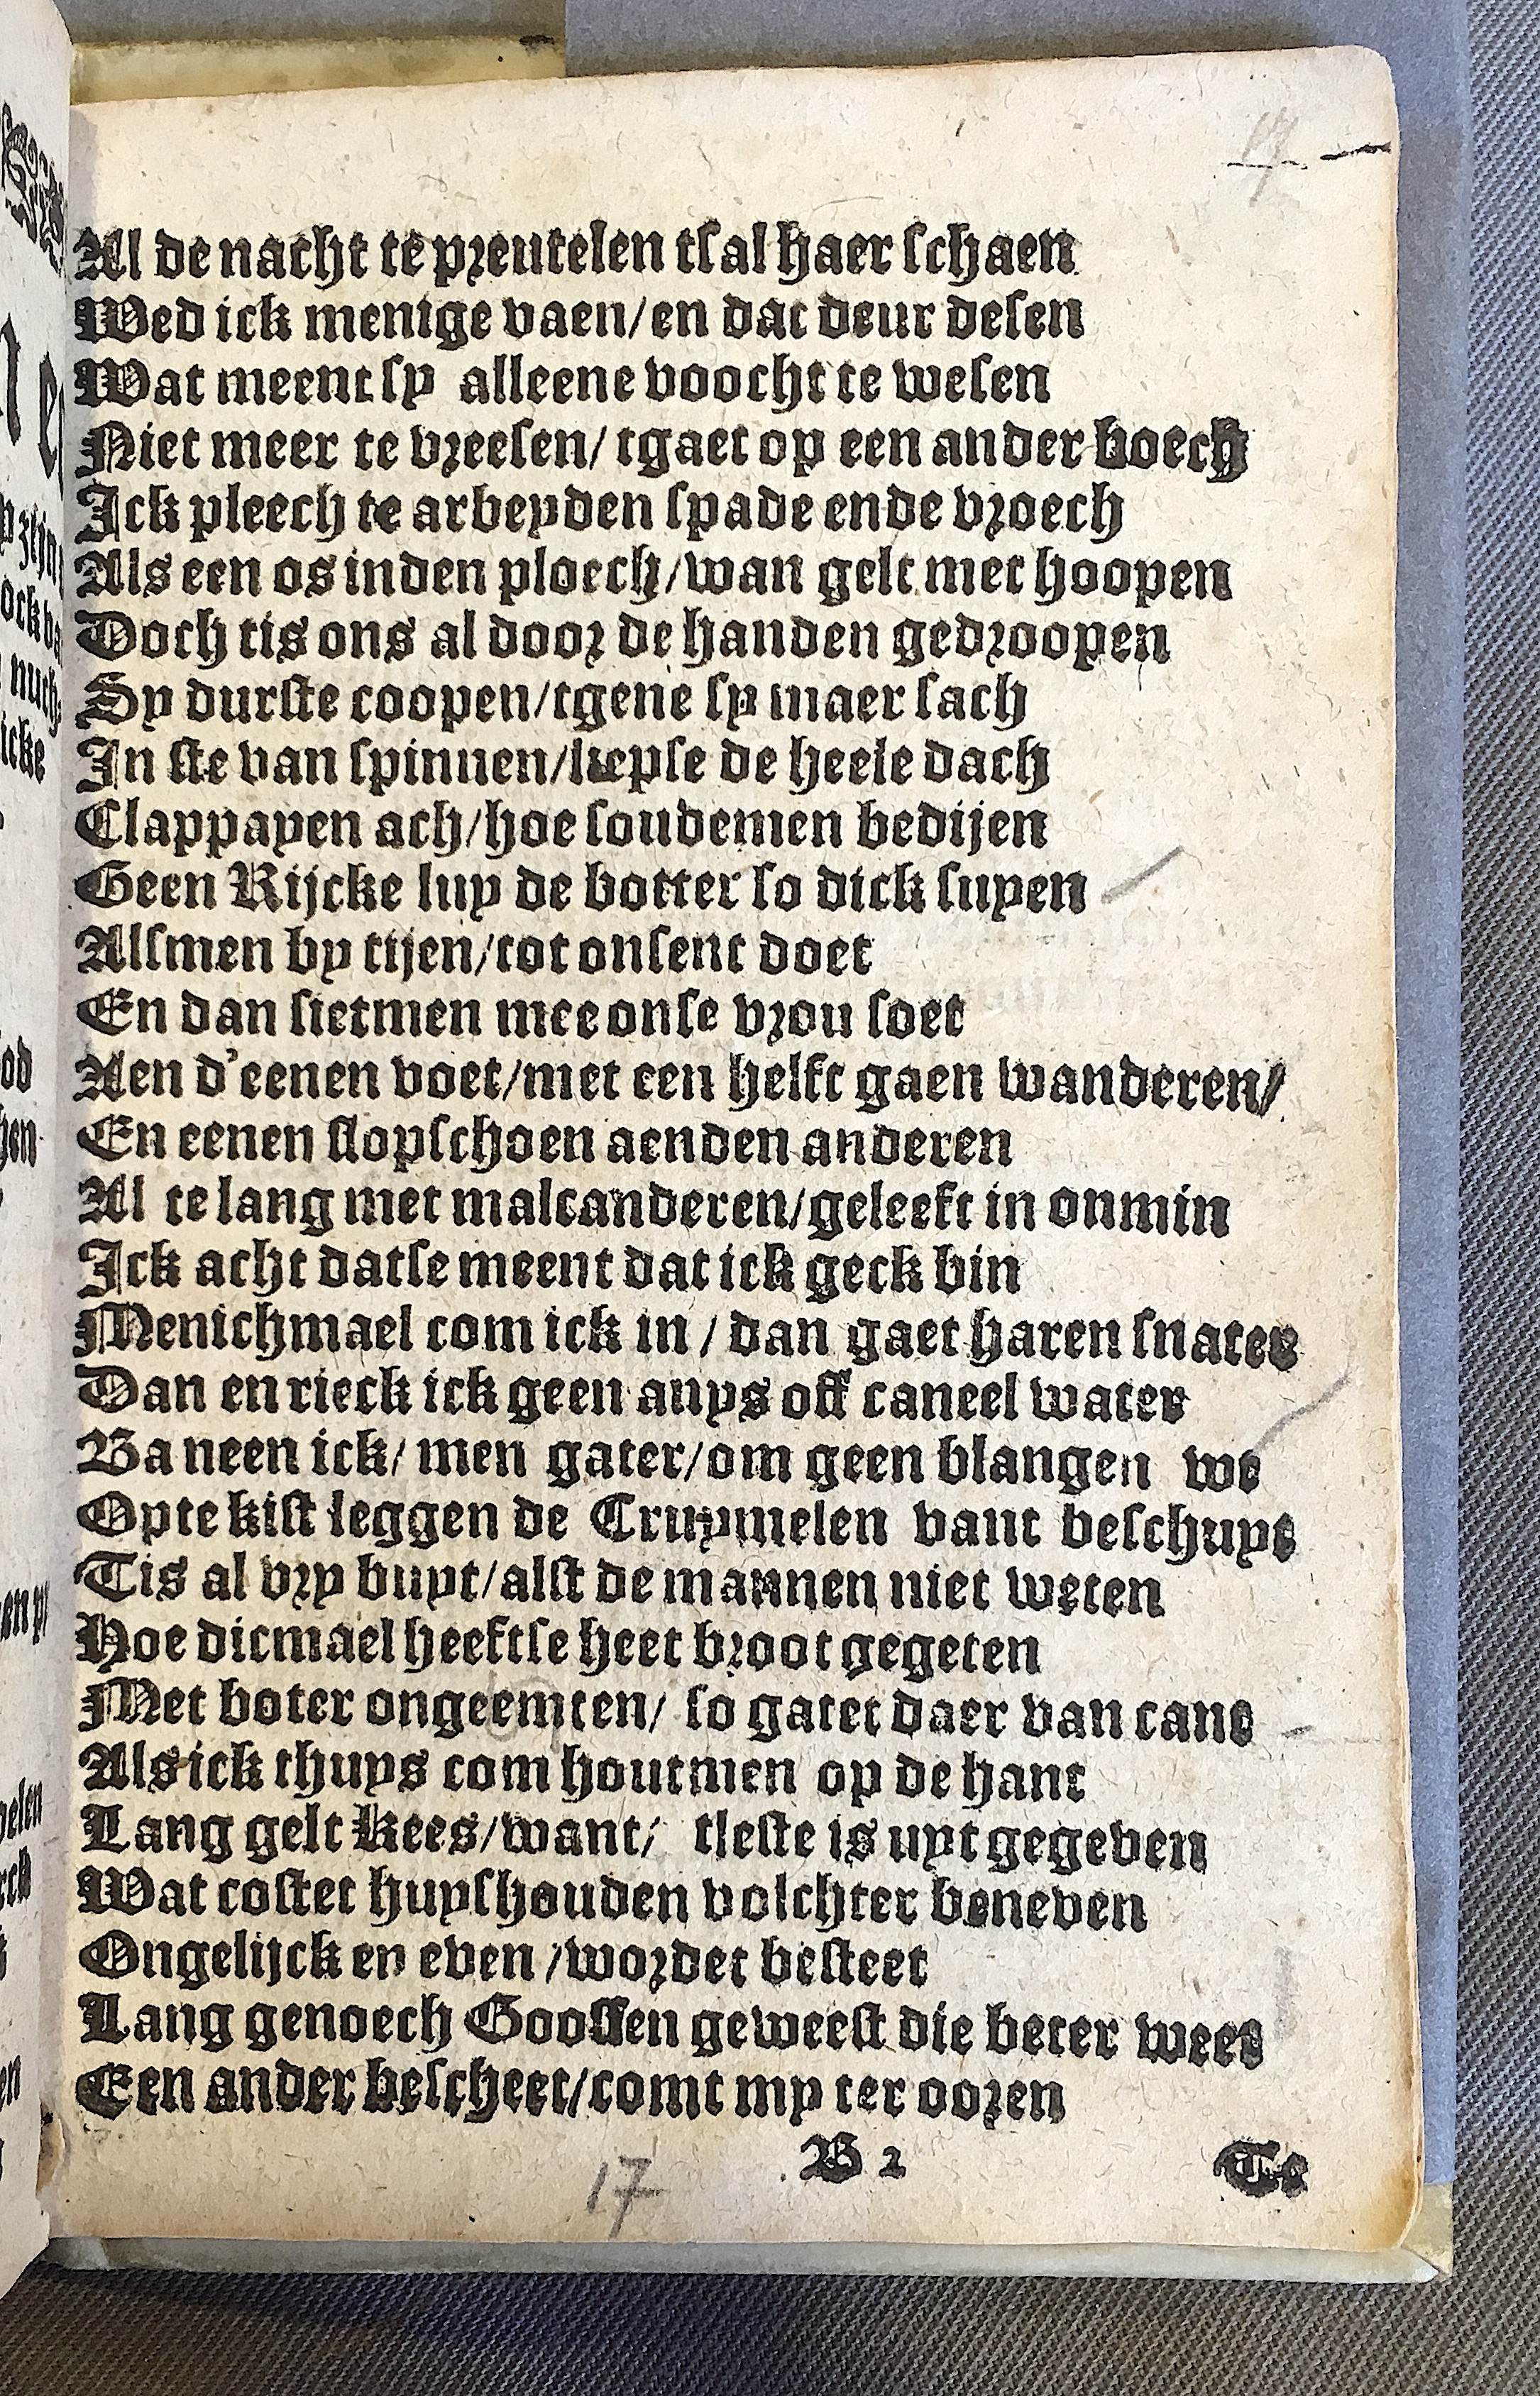 Al de nacht te preutelen tsal haer schaen
Wed ick menige vaen/en dat deur desen
Wat meent sy alleene voocht te wesen
Niet meer te vreesen/ tgaet op een ander boech
Ick pleech te arbeyden spade ende vroech
Als een os inden ploech/wan gelt met hoopen
Doch tis ons al door de handen gedroopen
Sy durste coopen/tgene sy maer sach
In ste van spinnen/liepse de heele dach
Clappayen ach/hoe soudemen bedijen
Geen Rijcke luy de botter so dick suyen
Alsmen by tijen/tot onsent doet
En dan sietmen mee onse vrou soet
Aen d'eenen voet/met een helft gaen wanderen/
En eenen slopschoen aenden anderen
Al te lang met malcanderen/geleeft in onmin
Ick acht datse meent dat ick geck bin
Menichmael com ick in / dan gaet haren snater
Dan en rieck ick geen anys off caneel water
Ba neen ick/ men gater/om geen blangen we
Opte kist leggen de Cruymelen vant beschuyt
Tis al vry buyt/alst de mannen niet weten
Hoe dicmael heeftse heet broot gegeten
Met boter ongeemten/ so gatet daer van cant
Als ick thuys com houtmen op de hant
Lang gelt Kees/want/ tleste is uyt gegeven
Wat costet huyshouden volchter beneven
Ongelijck en even /wordet besteet
Lang genoech Goossen geweest die beter weet
Een ander bescheet/comt my ter ooren
B 2 Te
17